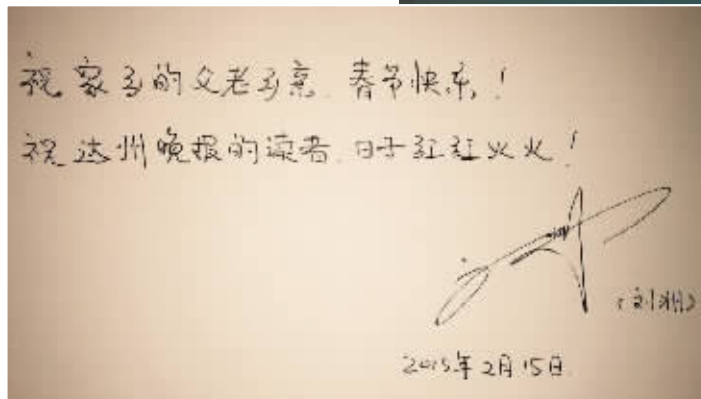 祝家乡的父老乡亲 春节快乐!
祝达州晚报的读者 日子红红火火!
2015年2月15日